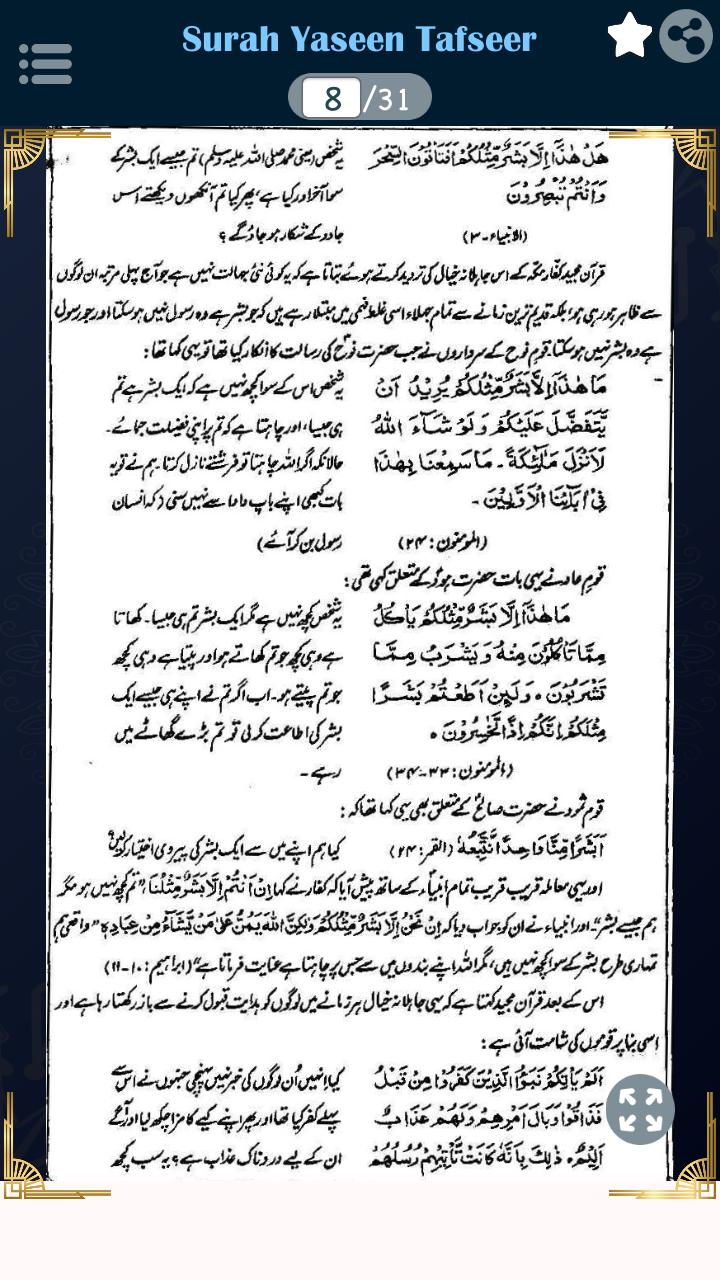 Surah Yaseen Tafseer
8/31
هَلْ هٰذَآ اِلَّا بَشَرٌ مِّثْلُكُمْ اَفَتَاْتُوْنَ السِّحْرَ یہ شخص (یعنی محمد صلی اللہ علیہ وسلم) تم جیسے ایک بشر کے
وَاَنْتُمْ تُبْصِرُوْنَ سوا آخر اور کیا ہے، پھر کیا تم آنکھوں دیکھتے اس
(الانبیاء-۳) جادو کے شکار ہو جاؤ گے؟
قرآن مجید کفارِ مکہ کے اس جاہلانہ خیال کی تردید کرتے ہوئے بتاتا ہے کہ یہ کوئی نئی جہالت نہیں ہے جو آج پہلی مرتبہ ان لوگوں
سے ظاہر ہو رہی ہو، بلکہ قدیم ترین زمانے سے تمام جہلاء اسی غلط فہمی میں مبتلا رہے ہیں کہ جو بشر ہے وہ رسول نہیں ہو سکتا اور جو رسول
ہے وہ بشر نہیں ہو سکتا۔ قومِ نوح کے سرداروں نے جب حضرت نوحؑ کی رسالت کا انکار کیا تھا تو یہی کہا تھا:
مَا هٰذَآ اِلَّا بَشَرٌ مِّثْلُكُمْ يُرِيْدُ اَنْ یہ شخص اس کے سوا کچھ نہیں ہے کہ ایک بشر ہے تم
يَّتَفَضَّلَ عَلَيْكُمْ وَلَوْ شَآءَ اللّٰهُ ہی جیسا، اور چاہتا ہے کہ تم پر اپنی فضیلت جمائے۔
لَاَنْزَلَ مَلٰٓئِكَةً۔ مَا سَمِعْنَا بِهٰذَا حالانکہ اگر اللہ چاہتا تو فرشتے نازل کرتا۔ ہم نے تو یہ
فِيْٓ اٰبَآئِنَا الْاَوَّلِيْنَ۔ بات کبھی اپنے باپ دادا سے نہیں سنی (کہ انسان
(المومنون: ۲۴) رسول بن کر آئے)
قومِ عاد نے یہی بات حضرت ہودؑ کے متعلق کہی تھی:
مَا هٰذَآ اِلَّا بَشَرٌ مِّثْلُكُمْ يَاْكُلُ یہ شخص کچھ نہیں ہے مگر ایک بشر تم ہی جیسا۔ کھاتا
مِمَّا تَاْكُلُوْنَ مِنْهُ وَيَشْرَبُ مِمَّا ہے وہی کچھ جو تم کھاتے ہو اور پیتا ہے وہی کچھ
تَشْرَبُوْنَ ٥ وَلَئِنْ اَطَعْتُمْ بَشَرًا جو تم پیتے ہو۔ اب اگر تم نے اپنے ہی جیسے ایک
مِّثْلَكُمْ اِنَّكُمْ اِذًا لَّخٰسِرُوْنَ ٥ بشر کی اطاعت کر لی تو تم بڑے گھاٹے میں
(المومنون: ۳۳-۳۴) رہے۔
قومِ ثمود نے حضرت صالحؑ کے متعلق بھی یہی کہا تھا کہ:
اَبَشَرًا مِّنَّا وَاحِدًا نَّتَّبِعُهٗ (القمر: ۲۴) کیا ہم اپنے میں سے ایک بشر کی پیروی اختیار کر لیں؟
اور یہی معاملہ قریب قریب تمام انبیاء کے ساتھ پیش آیا کہ کفار نے کہا اِنْ اَنْتُمْ اِلَّا بَشَرٌ مِّثْلُنَا، ”تم کچھ نہیں ہو مگر
ہم جیسے بشر“۔ اور انبیاء نے ان کو جواب دیا کہ اِنْ نَّحْنُ اِلَّا بَشَرٌ مِّثْلُكُمْ وَلٰكِنَّ اللّٰهَ يَمُنُّ عَلٰى مَنْ يَّشَآءُ مِنْ عِبَادِهٖ ”واقعی ہم
تمہاری طرح بشر کے سوا کچھ نہیں ہیں، مگر اللہ اپنے بندوں میں سے جس پر چاہتا ہے عنایت فرماتا ہے“ (ابراہیم: ۱۰-۱۱)
اس کے بعد قرآن مجید کہتا ہے کہ یہی جاہلانہ خیال ہر زمانے میں لوگوں کو ہدایت قبول کرنے سے باز رکھتا رہا ہے اور
اسی بنا پر قوموں کی شامت آئی ہے:
اَلَمْ يَاْتِكُمْ نَبَؤُا الَّذِيْنَ كَفَرُوْا مِنْ قَبْلُ کیا انہیں اُن لوگوں کی خبر نہیں پہنچی جنہوں نے اس سے
فَذَاقُوْا وَبَالَ اَمْرِهِمْ وَلَهُمْ عَذَابٌ پہلے کفر کیا تھا اور پھر اپنے کیے کا مزا چکھ لیا اور آگے
اَلِيْمٌ٥ ذٰلِكَ بِاَنَّهٗ كَانَتْ تَّاْتِيْهِمْ رُسُلُهُمْ ان کے لیے دردناک عذاب ہے؟ یہ سب کچھ